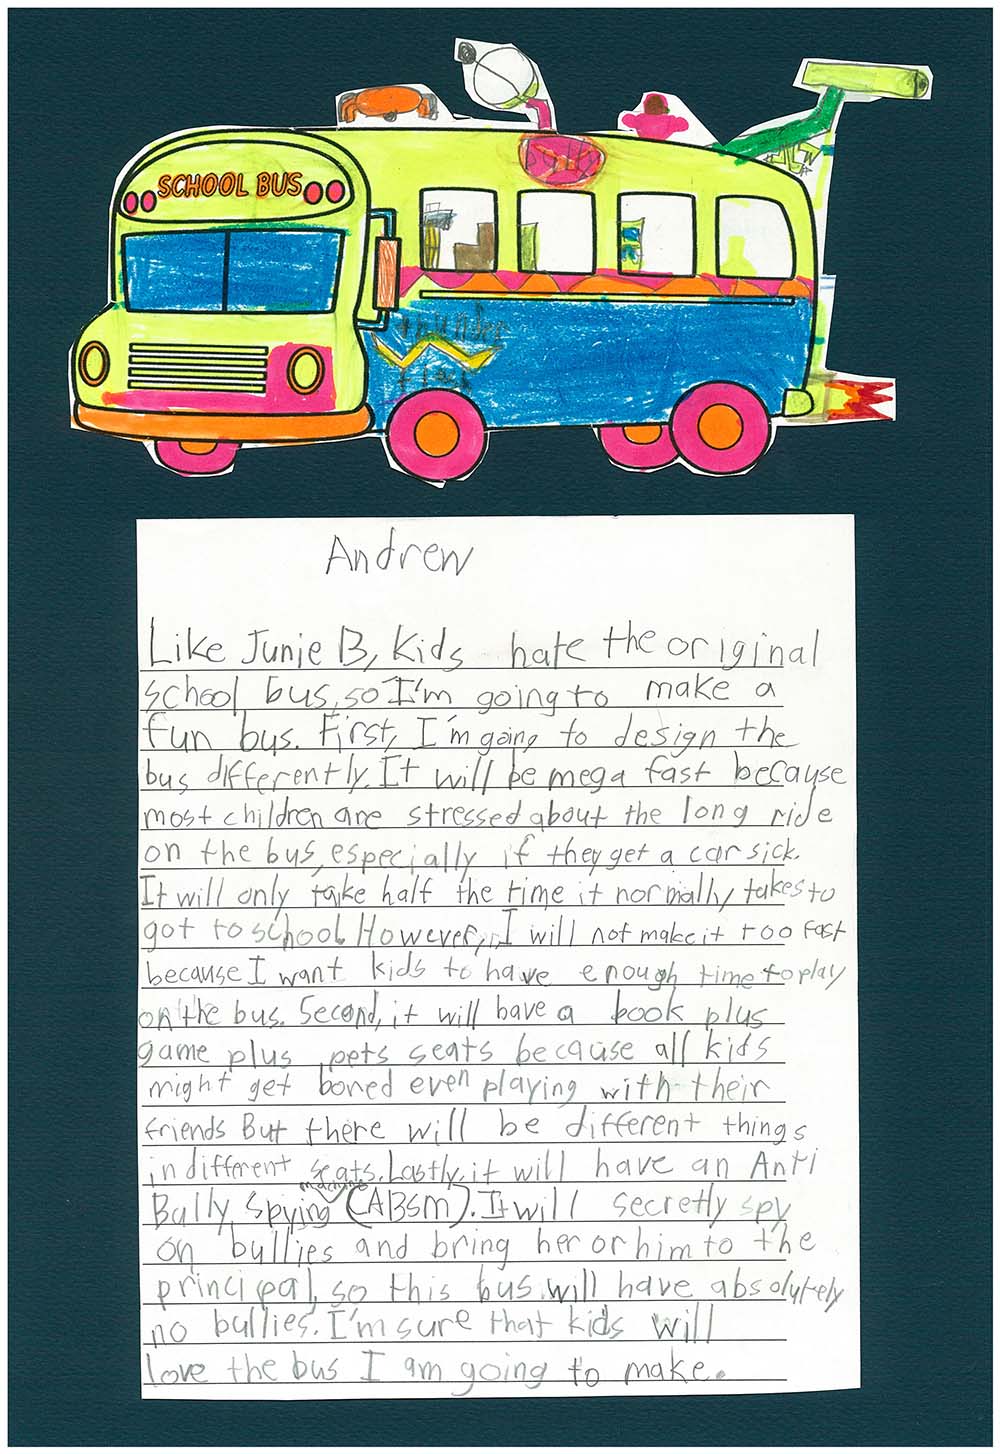 SCHOOL BUS
bully
thunder
flash
Andrew
Like Junie B, Kids hate the original
school bus, so I'm going to make a
fun bus. First, I'm going to design the
bus differently. It will be mega fast because
most children are stressed about the long ride
on the bus, especially if they get a car sick.
It will only take half the time it normally takes to
got to school However, I will not make it too fast
because I want kids to have enough time to play
on the bus. Second, it will have a book plus
game plus pets seats because all kids
might get bored even playing with their
friends But there will be different things
in different seats. Lastly, it will have an Anti
Bully Spying machine (ABSM). It will secretly spy
on bullies and bring her or him to the
principal, so this bus will have absolutely
no bullies. I'm sure that kids will
love the bus I am going to make.